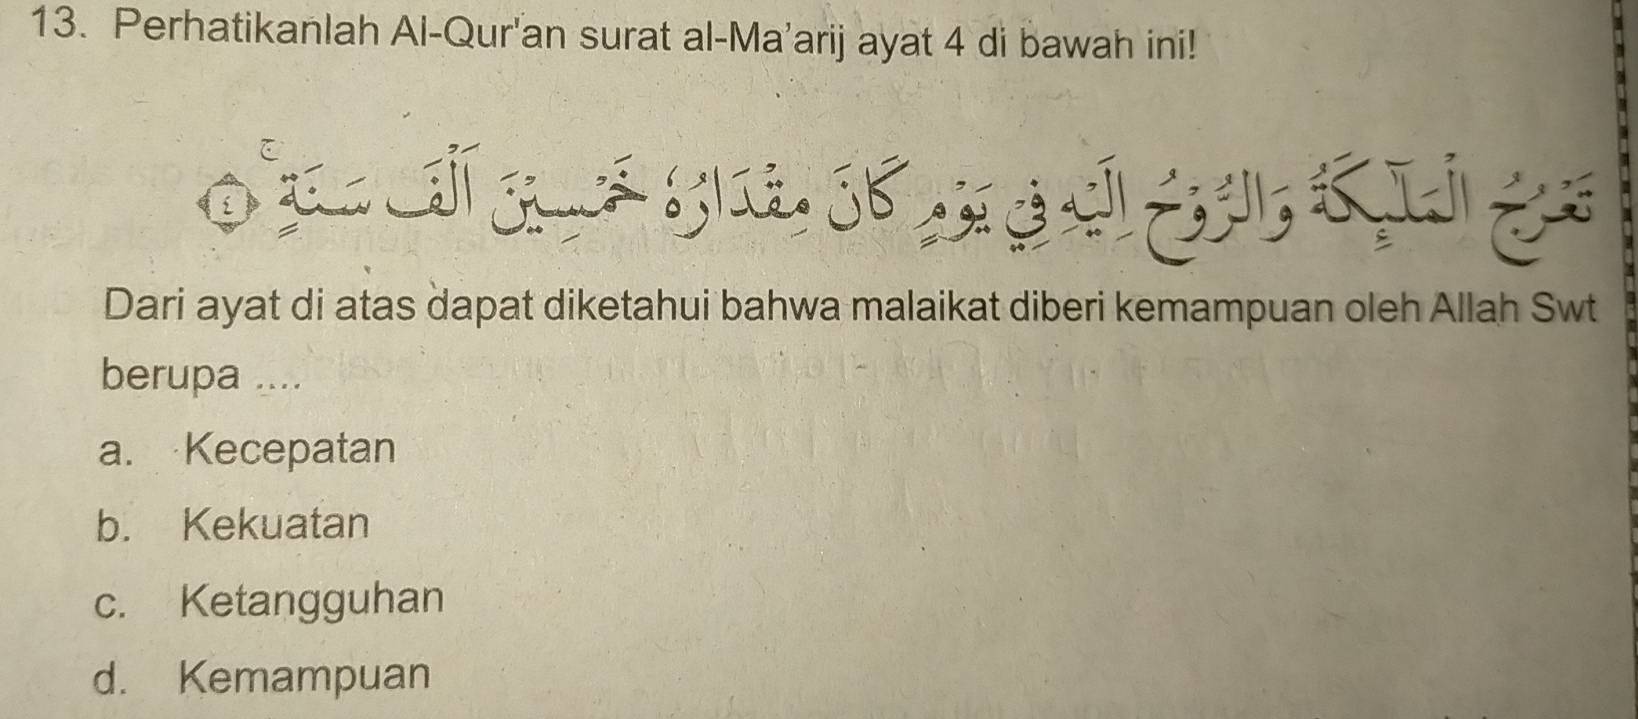 13. Perhatikanlah Al-Qur'an surat al-Ma'arij ayat 4 di bawah ini!
تَعْرُجُ الْمَلٰۤىِٕكَةُ وَالرُّوْحُ اِلَيْهِ فِيْ يَوْمٍ كَانَ مِقْدَارُهٗ خَمْسِيْنَ اَلْفَ سَنَةٍۚ ﴿٤﴾
Dari ayat di atas dapat diketahui bahwa malaikat diberi kemampuan oleh Allah Swt
berupa ....
a. Kecepatan
b. Kekuatan
c. Ketangguhan
d. Kemampuan